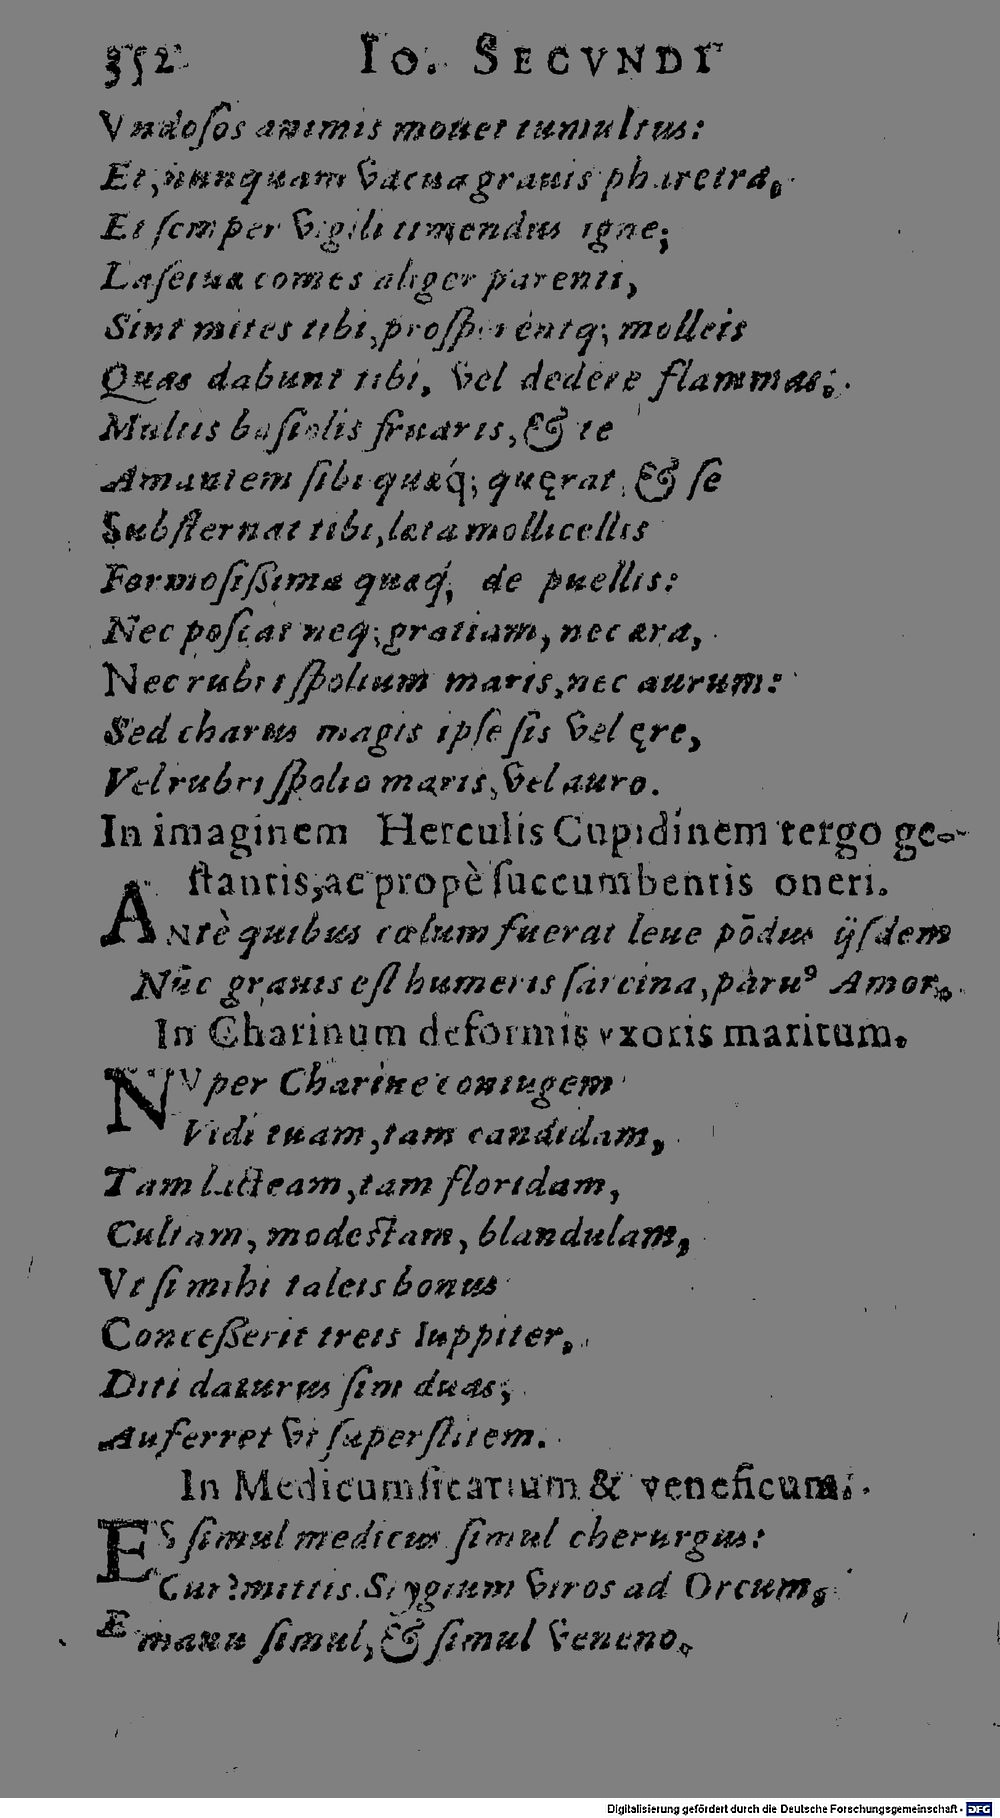 352 IO. SECVNDI
Vndoſos animis mouet tumultus:
Et, nunquam vacua grauis pharetra,
Et ſemper vigili timendus igne;
Laſciuæ comes aliger parenti,
Sint mites tibi, proſperentq; molleis
Quas dabunt tibi, vel dedere flammas:
Multis baſiolis fruaris, & te
Amantem ſibi quæq́; quęrat, & ſe
Subſternat tibi, læta mollicellis
Formoſißima quæq́; de puellis:
Nec poſcat neq; gratiam, nec æra,
Nec rubri ſpolium maris, nec aurum:
Sed charus magis ipſe ſis vel ęre,
Vel rubri ſpolio maris, vel auro.
In imaginem Herculis Cupidinem tergo ge-
ſtantis, ac propè ſuccumbentis oneri.
ANtè quibus cœlum fuerat leue põdus ijſdem
Nũc grauis eſt humeris ſarcina, paruꝰ Amor.
In Charinum deformis vxoris maritum.
NVper Charine coniugem
Vidi tuam, tam candidam,
Tam lacteam, tam floridam,
Cultam, modestam, blandulam,
Vt ſi mihi taleis bonus
Conceßerit treis Iuppiter,
Diti daturus ſim duas,
Auferret vt ſuperſtitem.
In Medicum ſicarium & veneficum.
ES ſimul medicus ſimul cherurgus:
Cur? mittis Stygium viros ad Orcum,
E manu ſimul, & ſimul veneno.
Digitalisierung gefördert durch die Deutsche Forschungsgemeinschaft - DFG